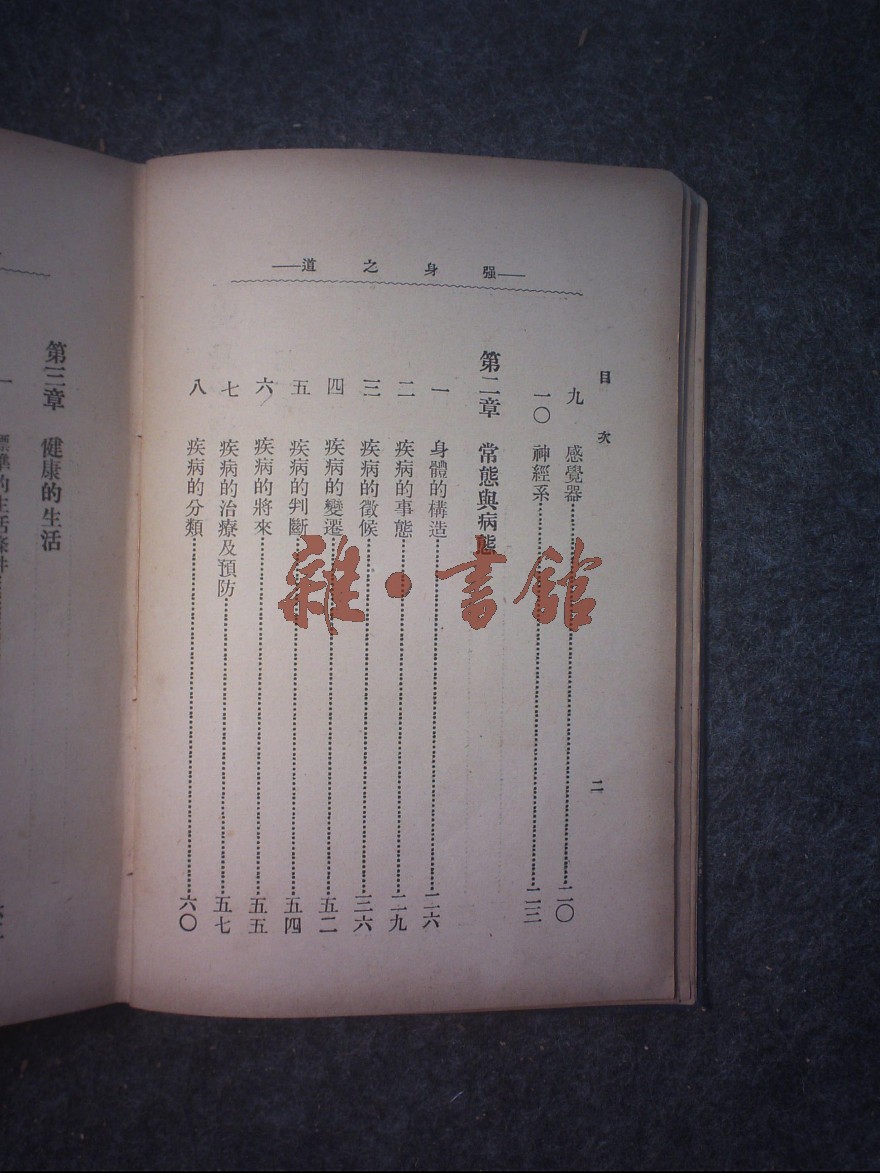 強身之道
目次
二
九 感覺器 二〇
一〇 神經系 二三
第二章 常態與病態
一 身體的構造 二六
二 疾病的事態 二九
三 疾病的徵候 三六
四 疾病的變遷 五二
五 疾病的判斷 五四
六 疾病的將來 五五
七 疾病的治療及預防 五七
八 疾病的分類 六〇
第三章 健康的生活
一 標準的生活條件
雜·書館